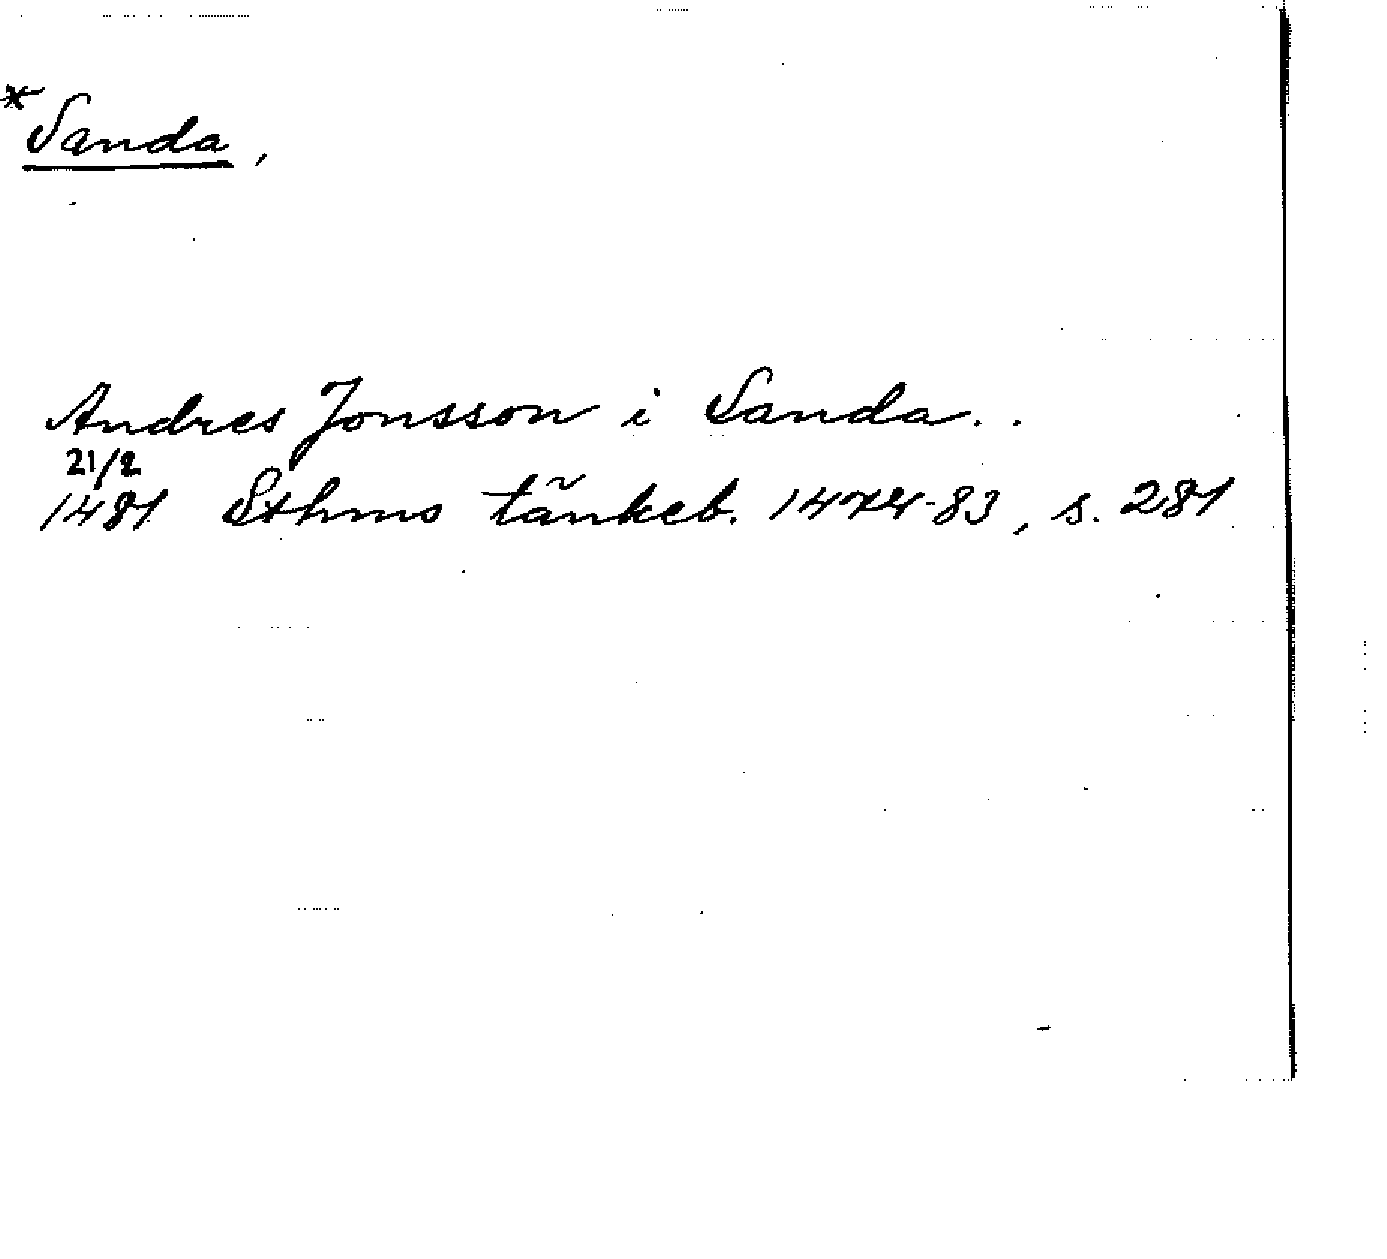 *Sanda,
Andres Jonsson i Sanda..
21/2
1481 Sthms tänkeb. 1474-83, s. 281